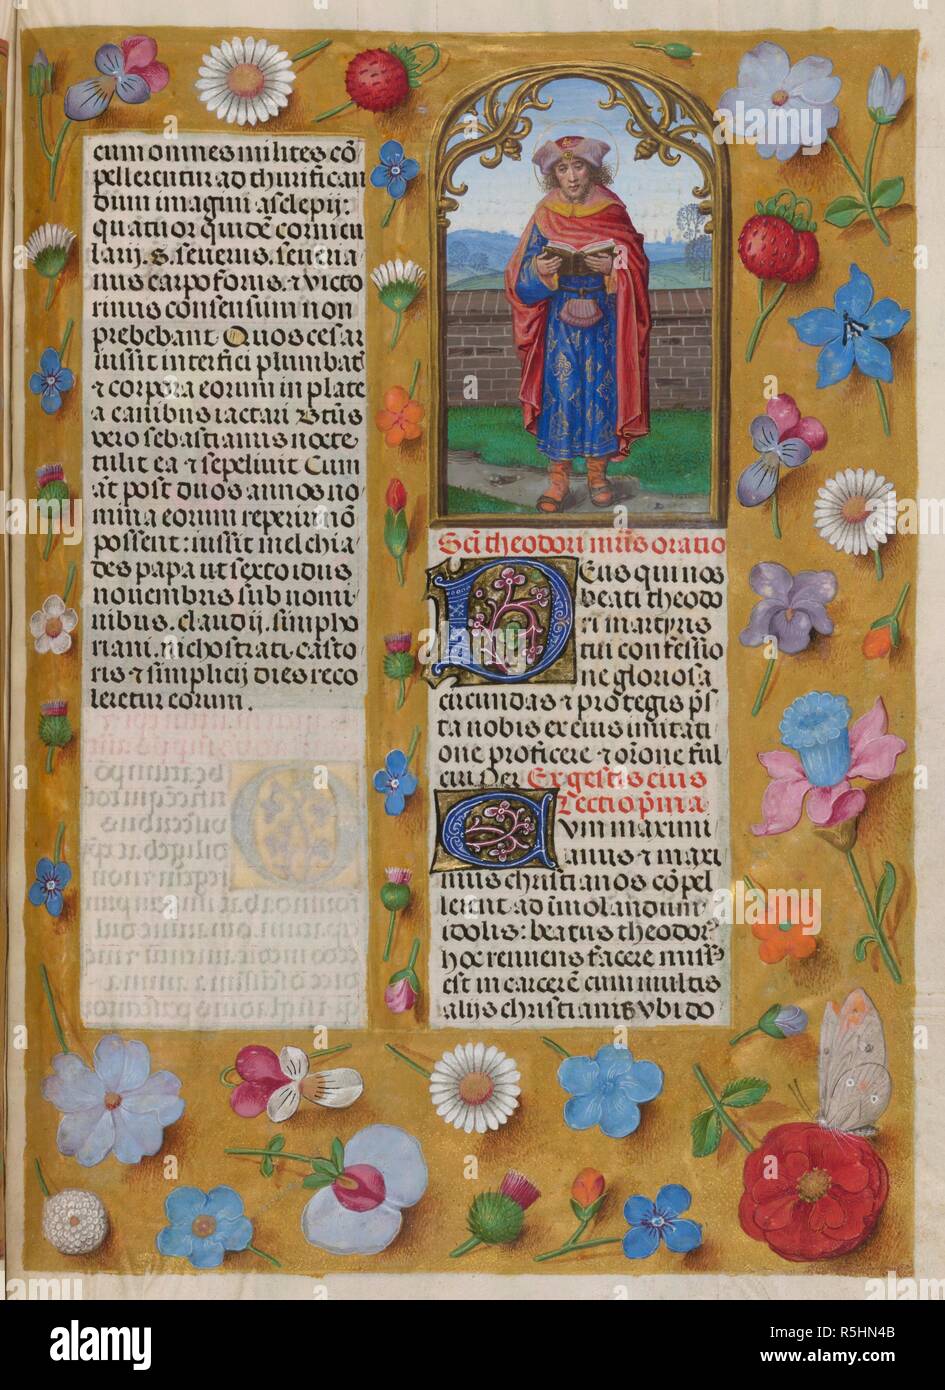 cum omnes milites cō
pellerentur ad thurifican
dum imagini asclepij:
quatuor quidē cornicu
larij. s. seuerus. seueria
nus carpoforus. ⁊ victo
rinus consensum non
prebebant Quos cesar
iussit interfici plumbat᷒
⁊ corpora eorum in plate
a canibus iactari Sctūs
vero sebastianus nocte
tulit ea ⁊ sepeliuit Cum
āt post duos annos no
mina eorum reperiri nō
possent: iussit melchia
des papa ut sexto idus
nouembris sub nomi
nibus. claudij. simpho
riani. nichostrati. casto
ris ⁊ simplicij dies reco
leretur eorum.
Scī theodori mr̄is oratio
Deus qui nos
beati theodo
ri martyris
tui confessio
ne gloriosa
circundas ⁊ protegis p̄s
ta nobis ex eius imitati
one proficere ⁊ orōne ful
ciri Per Ex gestis eius
Lectio p̄ma
Cum maximi
anus ⁊ maxi
mius christianos cōpel
lerent ad īmolandum
idolis: beatus theodor᷒
hoc rennuens facere miss᷒
est in carcerē cum multis
alijs christianis Vbi do
alamy
Image ID: R5HN4B
www.alamy.com